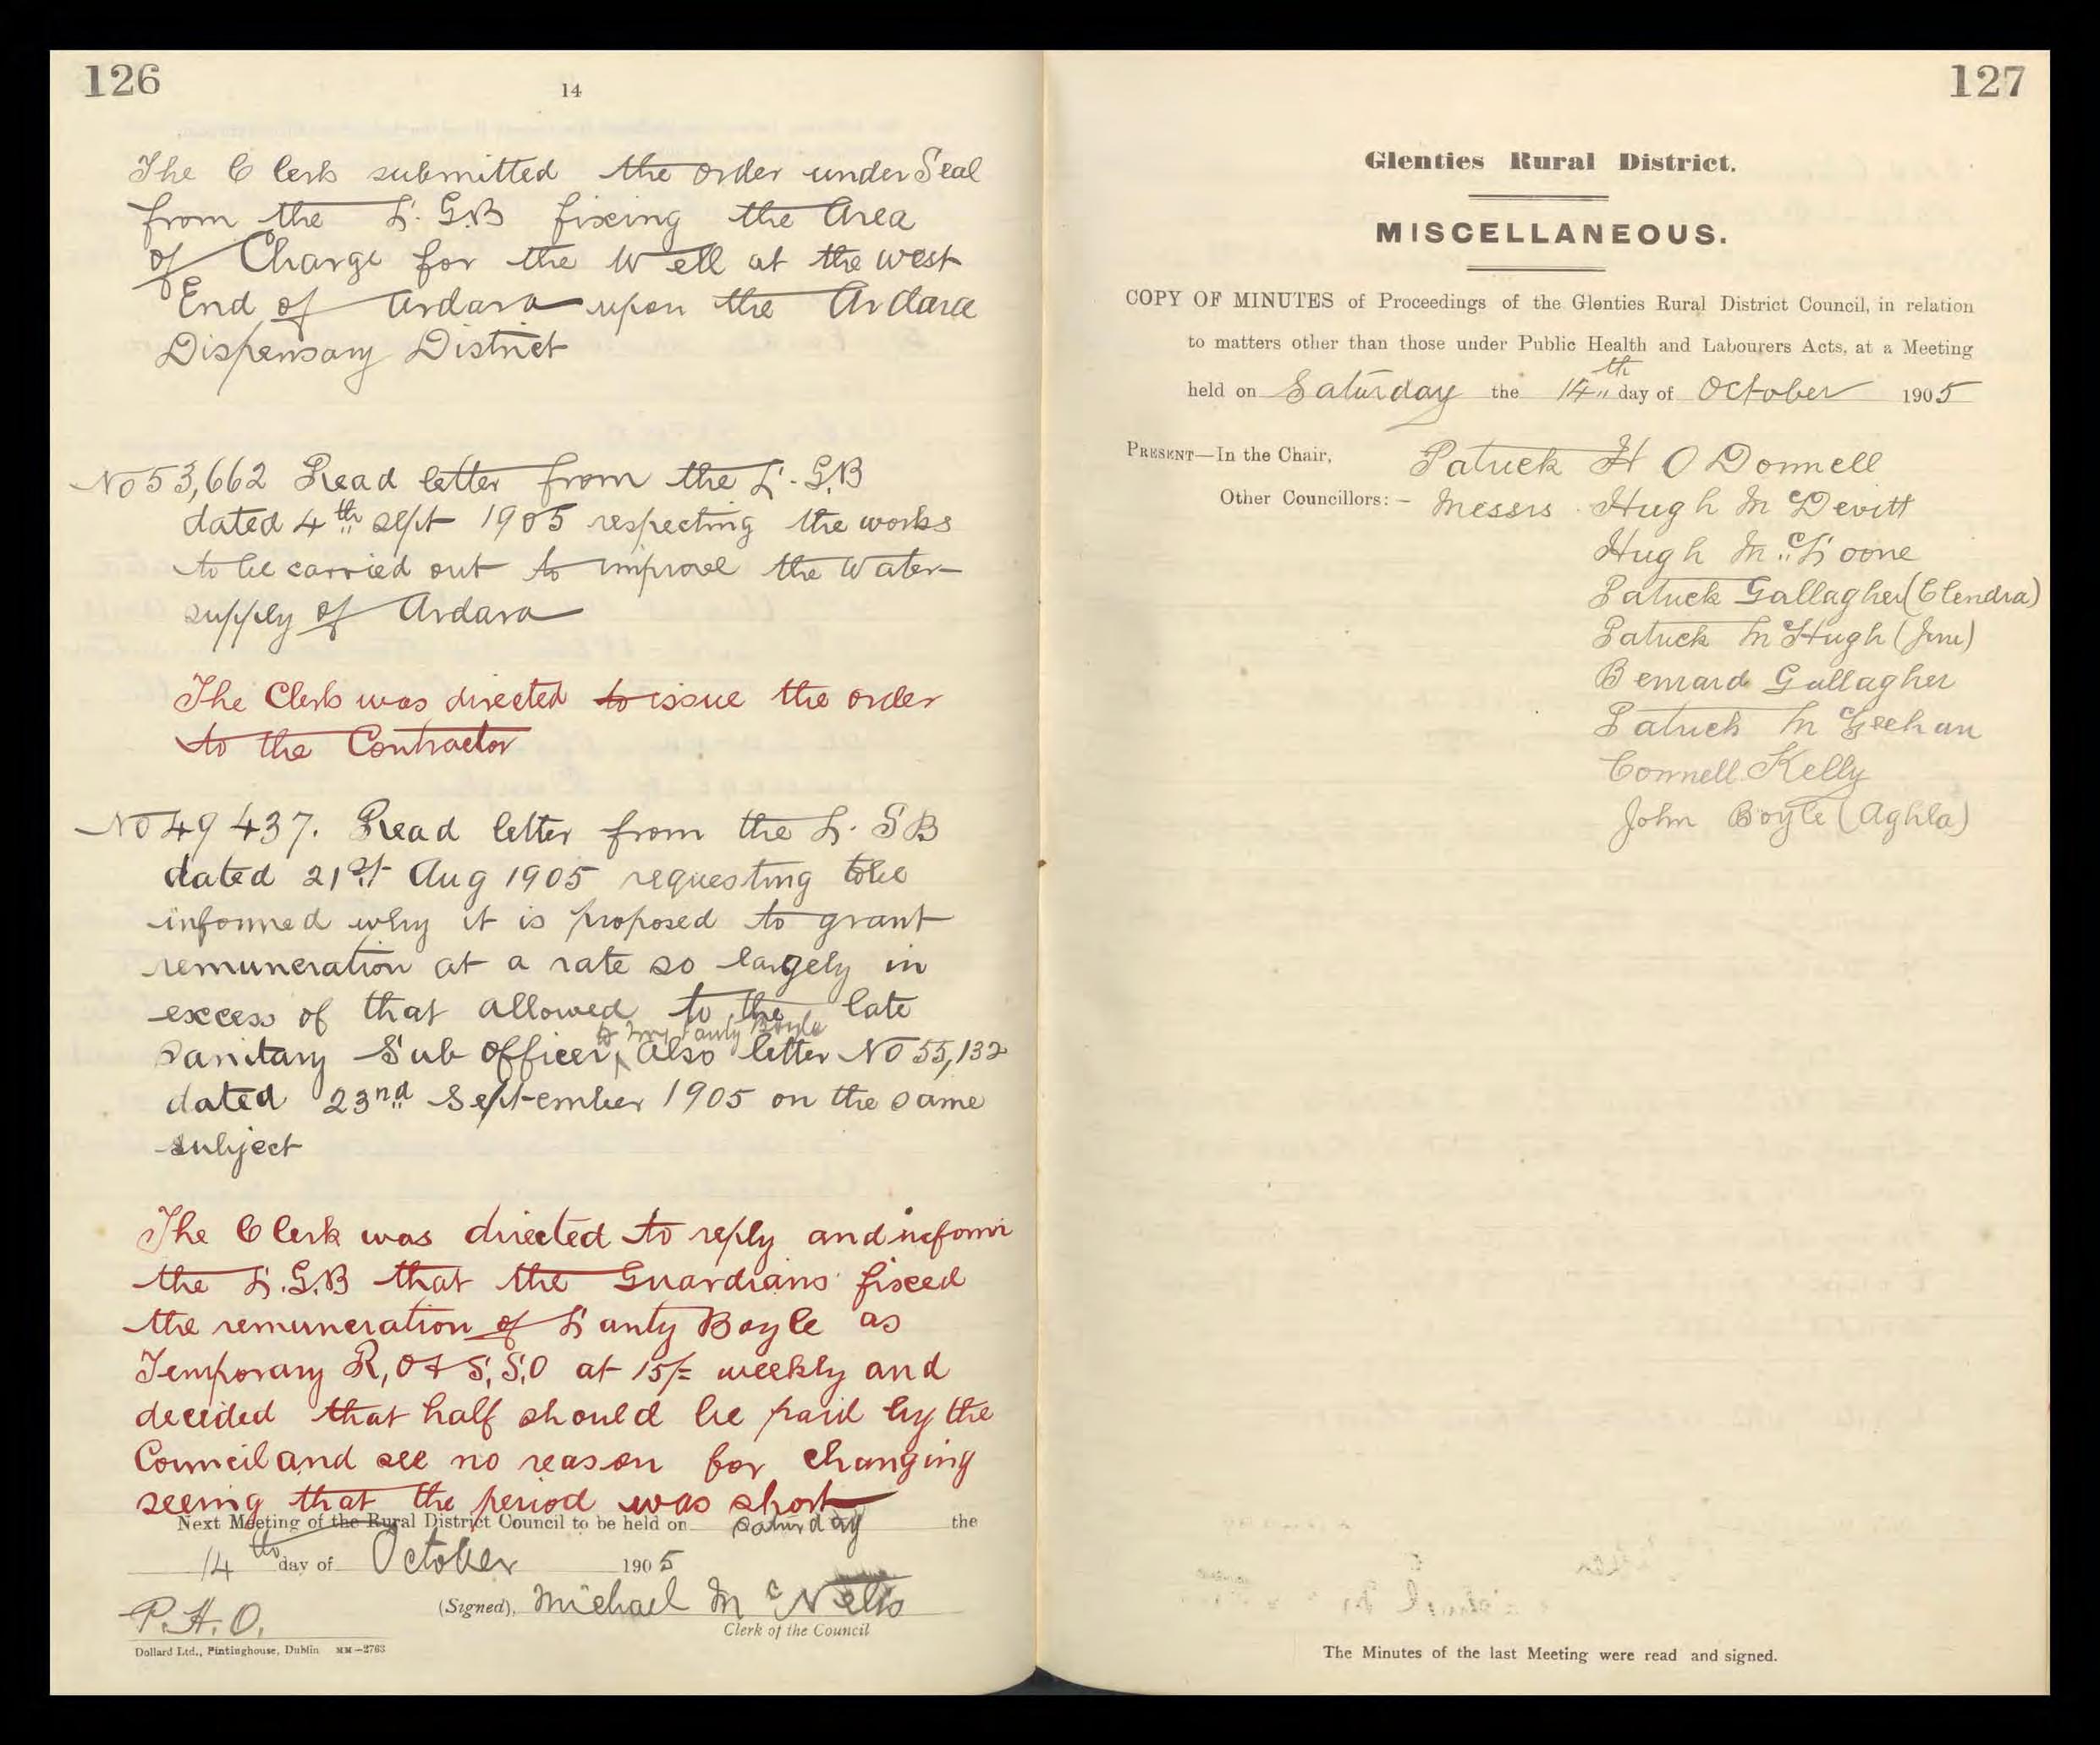 126
14
The Clerk submitted the order under Seal
from the L.G.B fixing the Area
of Charge for the Well at the west
End of Ardara upon the Ardara
Dispensary District
No 53,662 Read letter from the L.G.B
dated 4th sept 1905 respecting the works
to be carried out to improve the Water
supply of Ardara
The Clerk was directed to issue the order
to the Contractor
No 49437. Read letter from the L.G.B
dated 21st Aug 1905 requesting to be
informed why it is proposed to grant
remuneration at a rate so largely in
excess of that allowed to the late
to Mr Lanty Boyle
Sanitary Sub Officer, Also letter No 55,132
dated 23nd September 1905 on the same
subject
The Clerk was directed to reply and inform
the L.G.B that the Guardians fixed
the remuneration of Lanty Boyle as
Temporary R,O & S,S,O at 15/= weekly and
decided that half should be paid by the
Council and see no reason for changing
seeing that the period was short
Next Meeting of the Rural District Council to be held on Saturday the
14th day of October 1905
P.H.O. (Signed), Michael McNelis
Clerk of the Council
Dollard Ltd., Pintinghouse, Dublin MM—2763
127
Glenties Rural District.
MISCELLANEOUS.
COPY OF MINUTES of Proceedings of the Glenties Rural District Council, in relation
to matters other than those under Public Health and Labourers Acts, at a Meeting
held on Saturday the 14th day of October 1905
PRESENT—In the Chair, Patrick H O Donnell
Other Councillors:— Messrs Hugh McDevitt
Hugh McLoone
Patrick Gallagher (Clendra)
Patrick McHugh (Jim)
Bernard Gallagher
Patrick McGeehan
Connell Kelly
John Boyle (Aghla)
The Minutes of the last Meeting were read and signed.